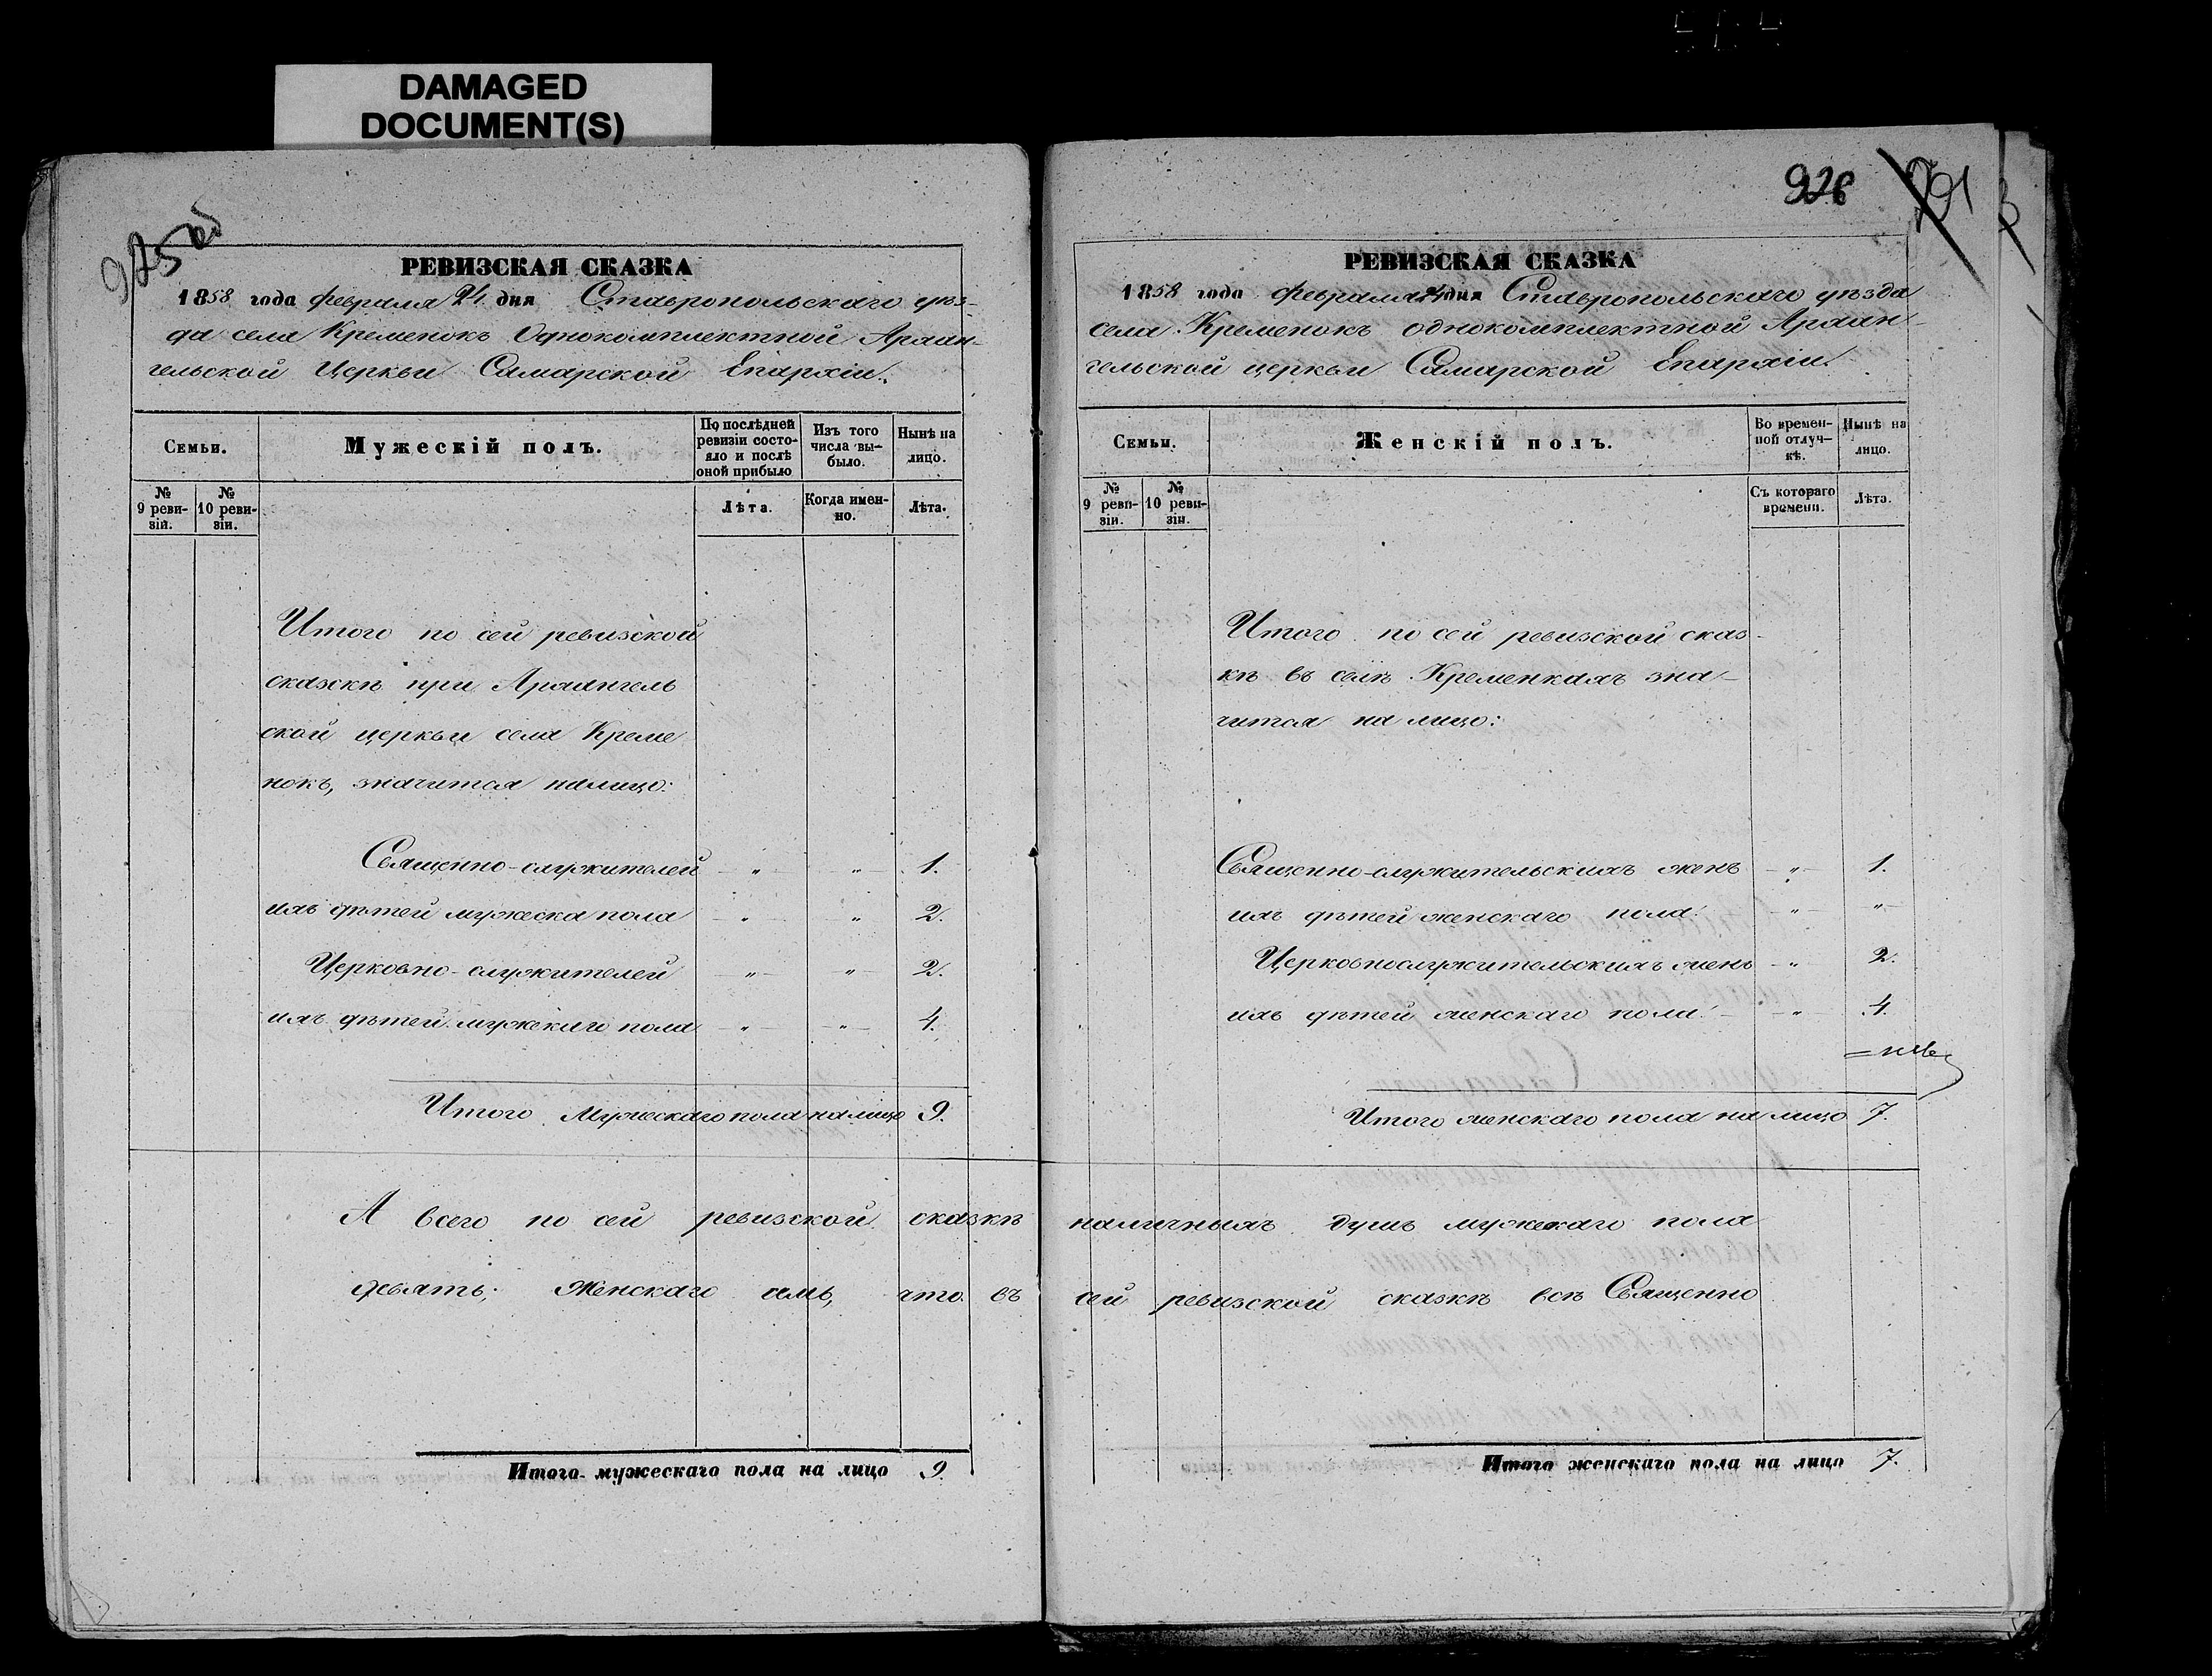 DAMAGED
DOCUMENT(S)
925 об
РЕВИЗСКАЯ СКАЗКА
1858 года февраля 24 дня Ставропольскаго уѣз-
да села Кременокъ Однокомплектной Архан-
гельской Церкви Самарской Епархіи.
Семьи.
Мужескій полъ.
По послѣдней ревизіи состо-яло и послѣ оной прибыло
Изъ того числа вы-было.
Нынѣ на лицо.
№ 9 реви-зіи.
№ 10 реви-зіи.
Лѣта.
Когда имен-но.
Лѣта.
Итого по сей ревизской
сказкѣ при Архангель
ской церкви села Креме
нокъ, значится налицо:
Священно-служителей " " 1.
ихъ дѣтей мужеска пола " " 2.
Церковно-служителей " " 2.
ихъ дѣтей мужскаго пола " " 4.
Итого Мужескаго пола на лицо 9.
А всего по сей ревизской сказкѣ
девять; Женскаго семь, что въ
Итого мужескаго пола на лицо 9.
926 291
РЕВИЗСКАЯ СКАЗКА
1858 года февраля 24 дня Ставропольскаго уѣзда
села Кременокъ однокомплектной Архан-
гельской церкви Самарской Епархіи.
Семьи.
Женскій полъ.
Во времен-ной отлуч-кѣ.
Нынѣ на лицо.
№ 9 реви-зіи.
№ 10 реви-зіи.
Съ котораго времени.
Лѣта.
Итого по сей ревизской сказ-
кѣ въ селѣ Кременкахъ зна-
чится на лицо:
Священно-служительскихъ женъ " 1.
ихъ дѣтей женскаго пола " "
Церковнослужительскихъ женъ " 2.
ихъ дѣтей женскаго пола " 4.
Итого женскаго пола на лицо 7.
наличныхъ душъ мужескаго пола
сей ревизской сказкѣ всѣ Священно
Итого женскаго пола на лицо 7.